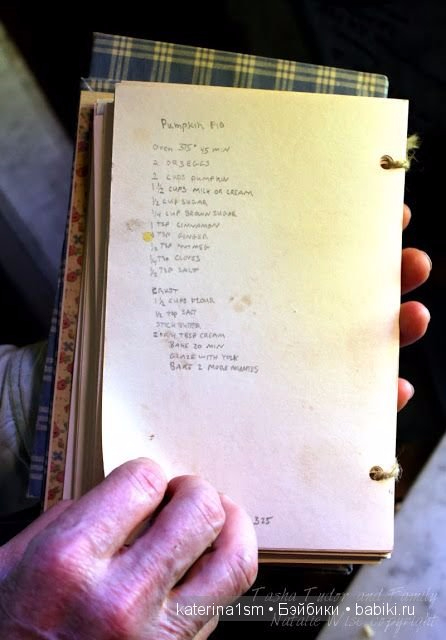 Pumpkin Pie
Oven 375° 45 min
2 OR 3 EGGS
2 CUPS PUMPKIN
1½ CUPS MILK OR CREAM
½ CUP SUGAR
¼ CUP BROWN SUGAR
1 TSP CINNAMON
TSP GINGER
½ TSP NUTMEG
¼ TSP CLOVES
½ TSP SALT
CRUST
1½ CUPS FLOUR
½ TSP SALT
STICK BUTTER
2 OR 4 TBSP CREAM
BAKE 20 MIN
GLAZE WITH YOLK
BAKE 2 MORE MINUTES
325
Tasha Tudor and Family
Natalie Wise Copyright
katerina1sm • Бэйбики • babiki.ru